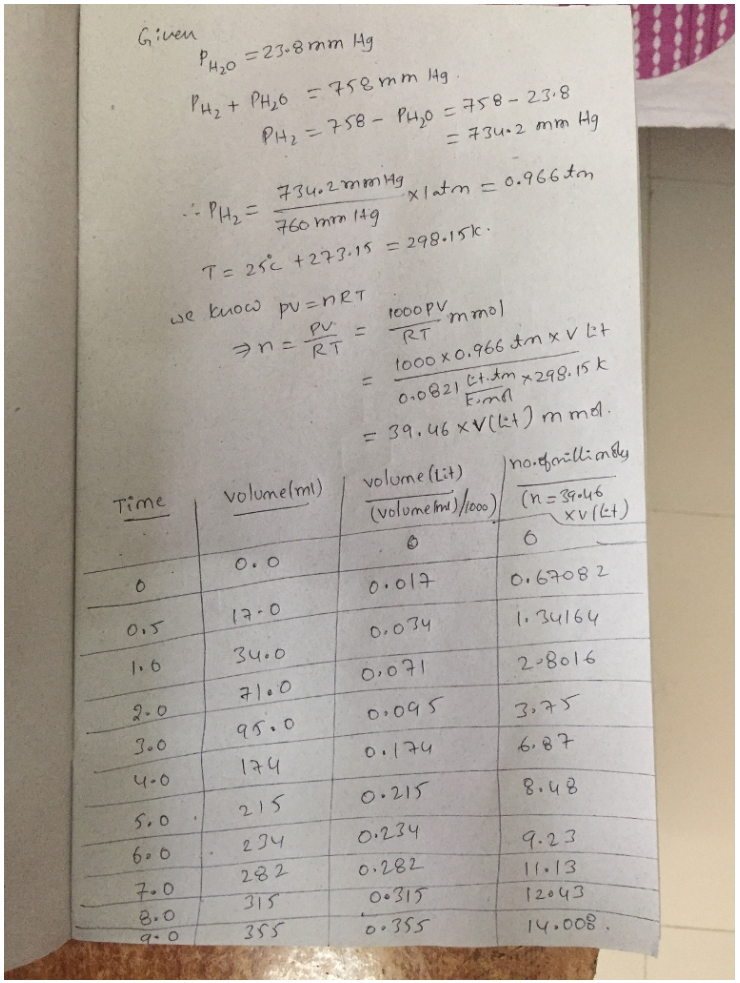 Given
P H2O = 23.8 mm Hg
PH2 + PH2O = 758 mm Hg.
PH2 = 758 - PH2O = 758 - 23.8
= 734.2 mm Hg
∴ PH2 = 734.2 mm Hg / 760 mm Hg × 1 atm = 0.966 atm
T = 25°C + 273.15 = 298.15k.
we know PV = nRT
⇒ n = PV / RT = 1000 PV / RT mmol
= 1000 × 0.966 atm × V Lit / 0.0821 Lit.atm / K.mol × 298.15 k
= 39.46 × V(Lit) m mol.
Time | volume(ml) | volume (Lit) (volume(ml)/1000) | no. of millimoles (n = 39.46 × V(Lit)
0 | 0.0 | 0 | 0
0.5 | 17.0 | 0.017 | 0.67082
1.0 | 34.0 | 0.034 | 1.34164
2.0 | 71.0 | 0.071 | 2.8016
3.0 | 95.0 | 0.095 | 3.75
4.0 | 174 | 0.174 | 6.87
5.0 | 215 | 0.215 | 8.48
6.0 | 234 | 0.234 | 9.23
7.0 | 282 | 0.282 | 11.13
8.0 | 315 | 0.315 | 12.43
9.0 | 355 | 0.355 | 14.008.